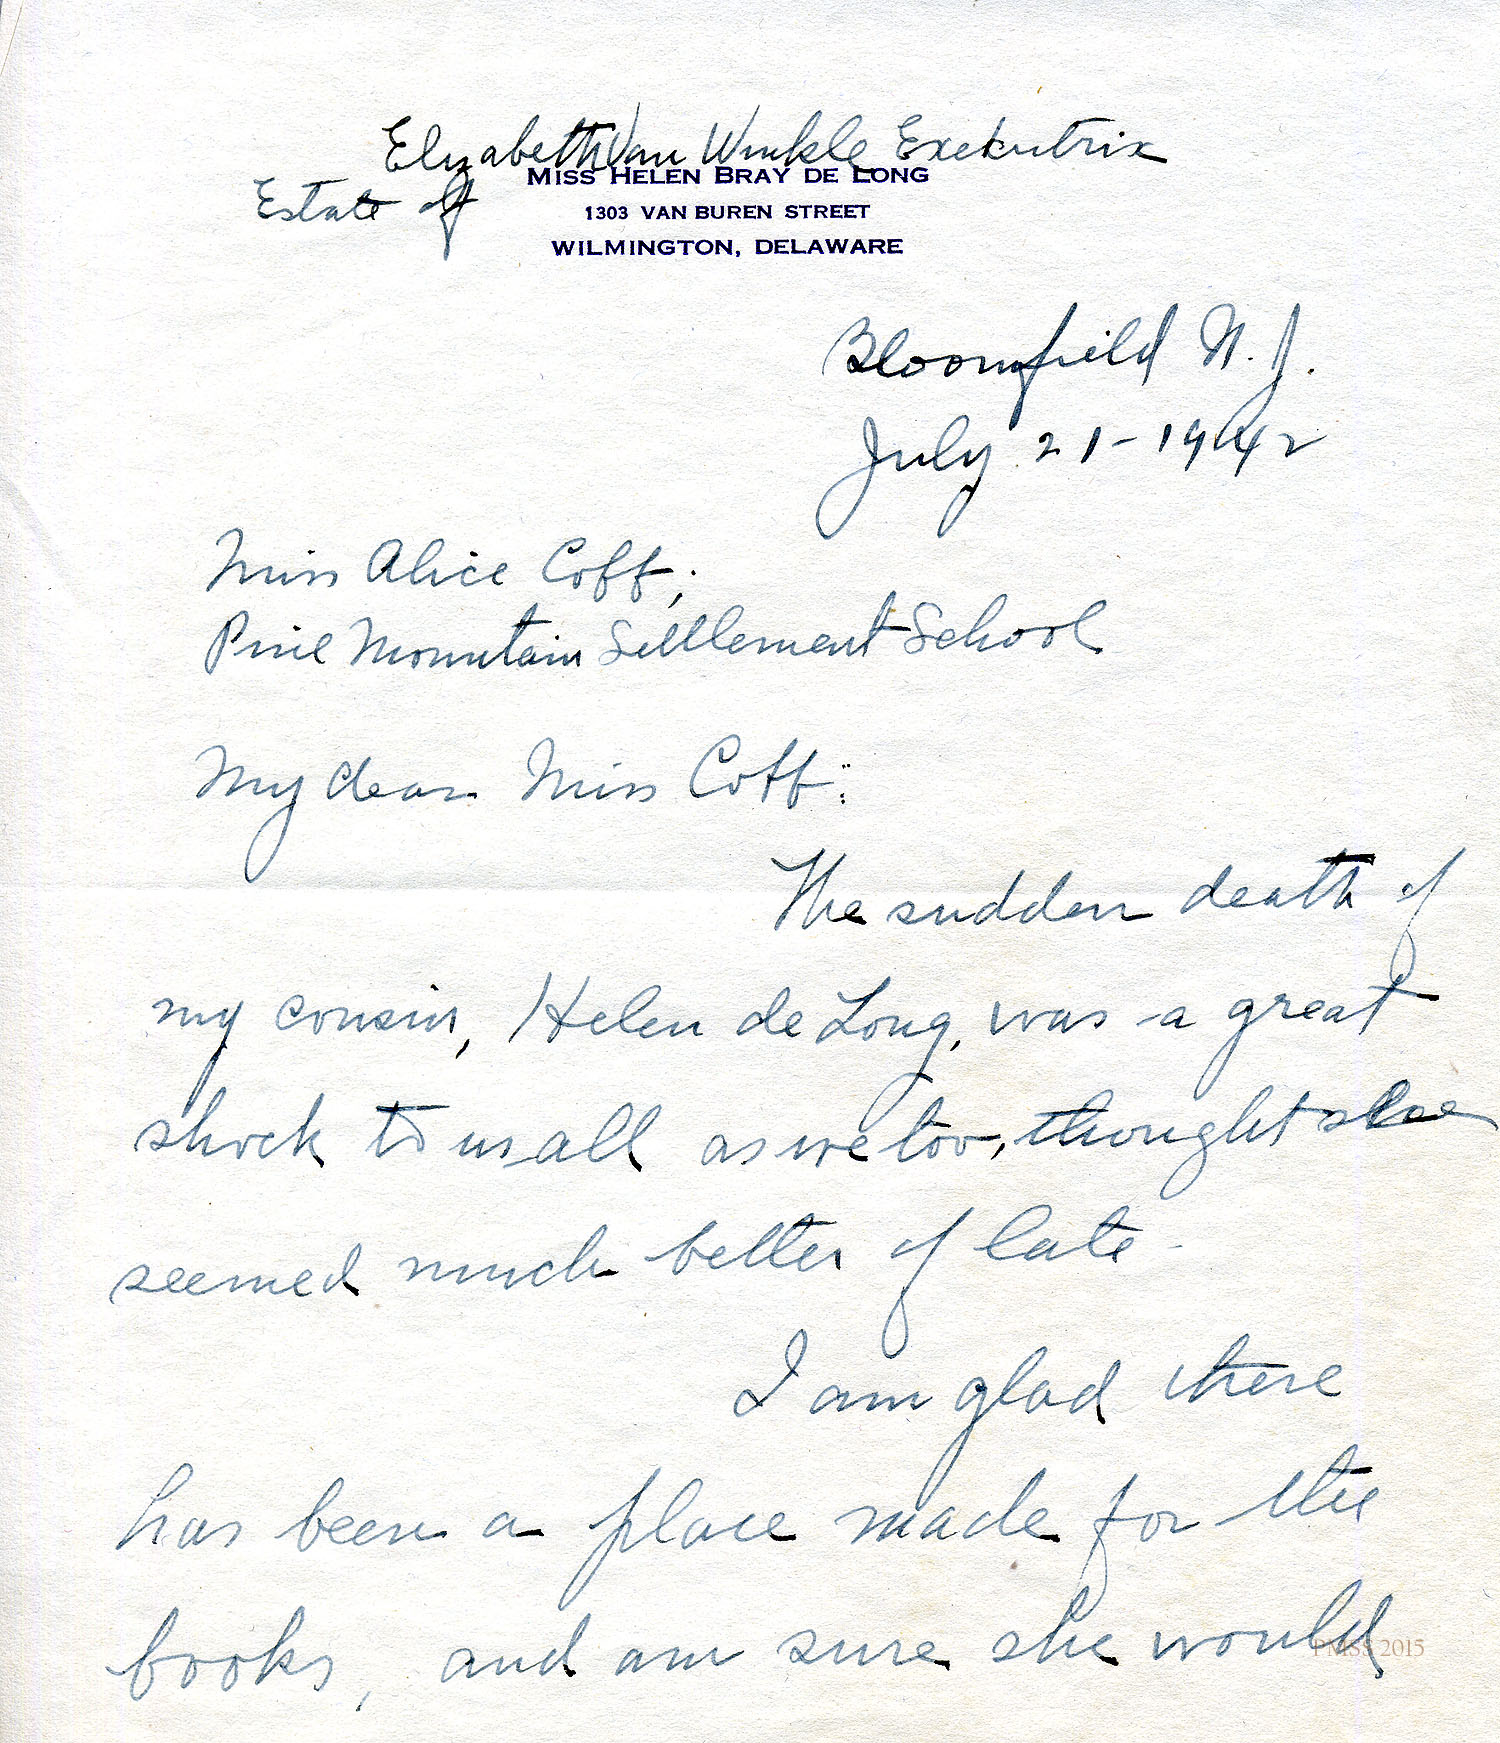 Elizabeth Van Winkle Exekutrix
Estate of
MISS HELEN BRAY DE LONG
1303 VAN BUREN STREET
WILMINGTON, DELAWARE
Bloomfield N.J.
July 21-1942
Miss Alice Cobb,
Pine Mountain Settlement School
My dear Miss Cobb:
The sudden death of
my cousin, Helen de Long, was a great
shock to us all as we too, thought she
seemed much better of late-
I am glad there
has been a place made for the
books, and am sure she would
PMSS 2015